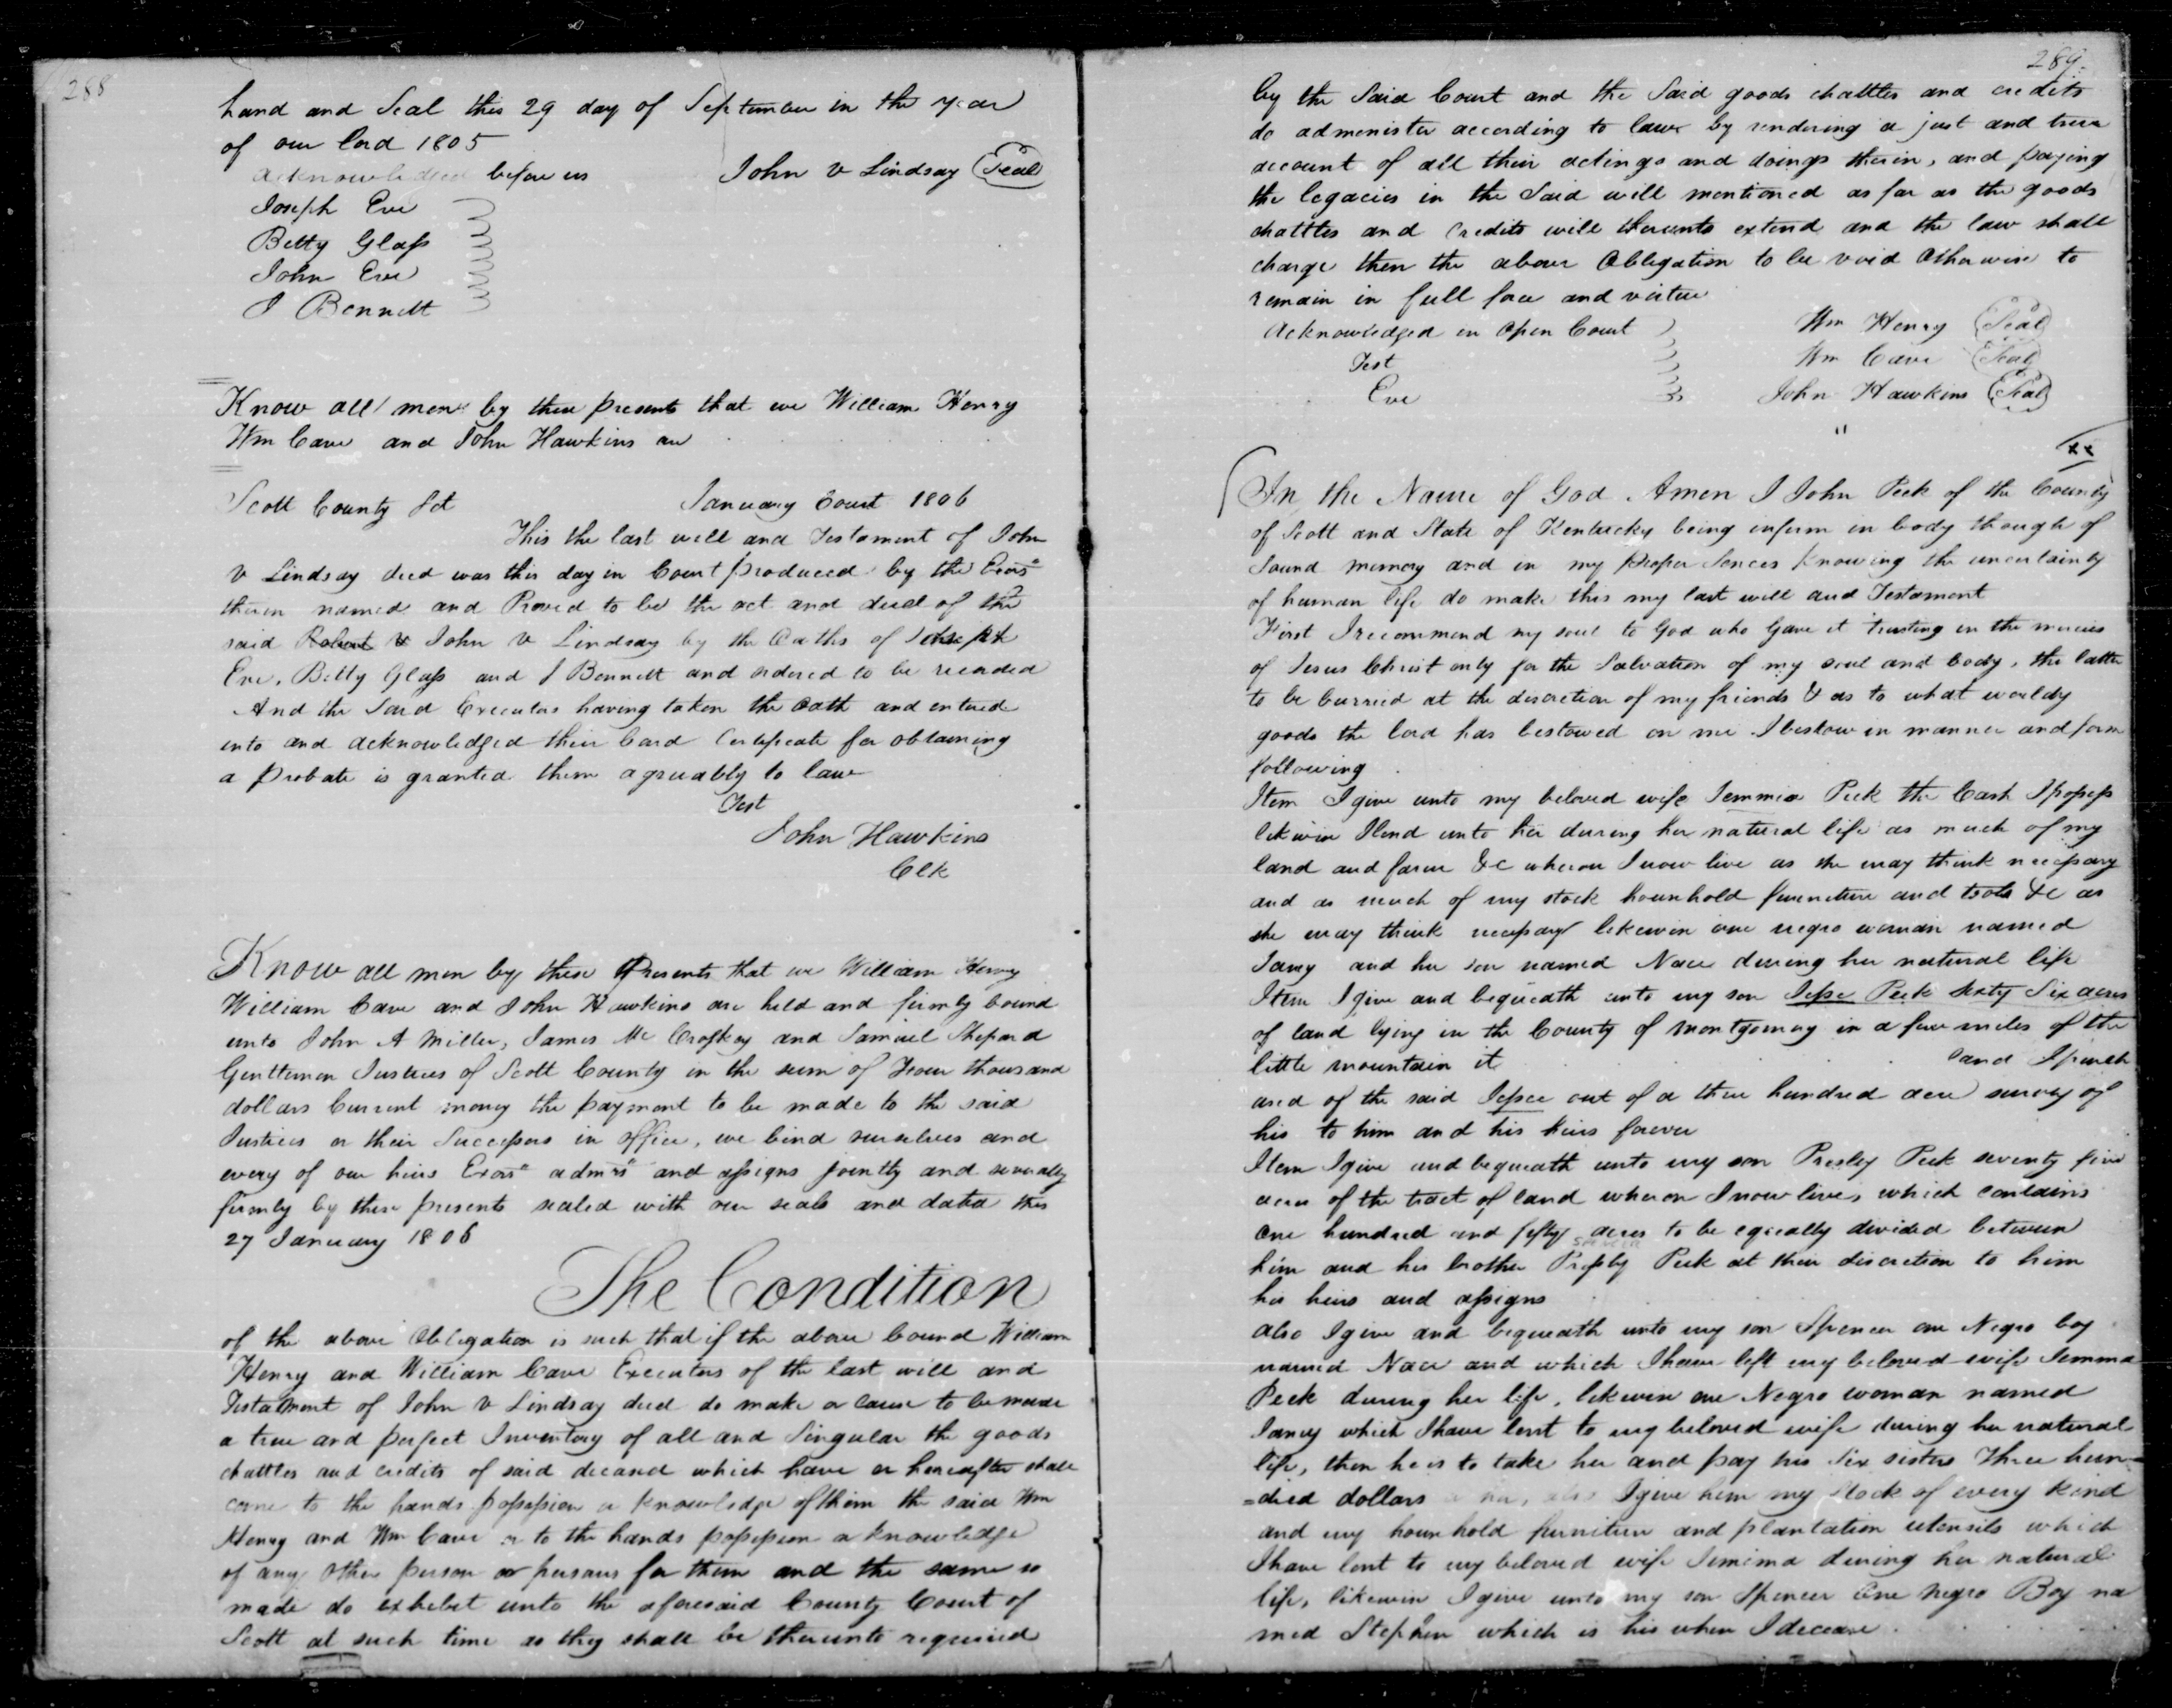 288
hand and Seal this 29 day of September in the year
of our lord 1805
acknowledged before us John v Lindsay Seal
Joseph Eve
Betty Glass
John Eve
J Bennett
Know all men by these presents that we William Henry
Wm Cave and John Hawkins are
Scott County Sct January Court 1806
This the last will and Testament of John
v Lindsay decd was this day in Court produced by the Exors
therein named and Proved to be the act and deed of the
said Robert v John v Lindsay by the Oaths of Joseph
Eve, Betty Glass and J Bennett and ordered to be recorded
And the Said Executors having taken the Oath and entered
into and acknowledged their bond Certificate for obtaining
a probate is granted them agreeably to law
Test
John Hawkins
Clk
Know all men by these Presents that we William Henry
William Cave and John Hawkins are held and firmly bound
unto John A Miller, James Mc Croskey and Samuel Shepard
Gentlemen Justices of Scott County in the sum of Four thousand
dollars Current money the payment to be made to the said
Justices or their Successors in office, we bind ourselves and
every of our heirs Exors admrs and assigns jointly and severally
firmly by these presents sealed with our seals and dated this
27 January 1806
The Condition
of the above Obligation is such that if the above bound William
Henry and William Cave Executors of the last will and
Testatment of John v Lindsay decd do make or cause to be made
a true and perfect Inventory of all and Singular the goods
chattles and credits of said deceased which have or hereafter shall
come to the hands possession or knowledge of them the said Wm
Henry and Wm Cave or to the hands possession or knowledge
of any other person or persons for them and the same so
made do exhebet unto the aforesaid County Court of
Scott at such time as they shall be thereunto required
289
by the Said Court and the Said goods chattles and credits
do administer according to law by rendering a just and true
account of all their actings and doings therein, and paying
the legacies in the Said will mentioned as far as the goods
chattles and Credits will thereunto extend and the law shall
charge then the above Obligation to be void Otherwise to
remain in full force and virtue
Acknowledged in Open Court Wm Henry Seal
Test Wm Cave Seal
Eve John Hawkins Seal
In the Name of God Amen I John Peek of the County
of Scott and State of Kentucky being inferm in body though of
Sound memory and in my proper Sences knowing the uncertainty
of human life do make this my last will and Testament
First I recommend my soul to God who Gave it trusting in the mercies
of Jesus Christ only for the Salvation of my soul and body, the latter
to be burried at the discretion of my friends & as to what worldy
goods the lord has bestowed on me I bestow in manner and form
following
Item I give unto my beloved wife Jemmia Peek the Cash I possess
likewise I lend unto her during her natural life as much of my
land and farm &c whereon I now live as she may think necessary
and as much of my stock household furneture and tools &c as
she may think necessary likewise one negro woman named
Jamy and her son named Nace during her natural life
Item I give and bequeath unto my son Jesse Peek sixty Six acres
of land lying in the County of Montgomery in a few miles of the
little mountain it land I purch
ased of the said Jessee out of a three hundred acre survey of
his to him and his heirs forever
Item I give and bequeath unto my son Presley Peek seventy five
acres of the tract of land whereon I now live, which contains
One hundred and fifty acres to be equally divided between
him and his brother Pressly Peek at their discretion to him
his heirs and assigns
also I give and bequeath unto my son Spencer one Negro boy
named Nace and which I have left my beloved wife Jemma
Peek during her life, likewise one Negro woman named
Jamey which I have lent to my beloved wife during her natural
life, then he is to take her and pay his Six sisters Three hun=
=dred dollars also I give him my Stock of every kind
and my household furniture and plantation utensils which
I have lent to my beloved wife Jemima during her natural
life, likewise I give unto my son Spencer One negro Boy na
med Stephen which is his when I decease